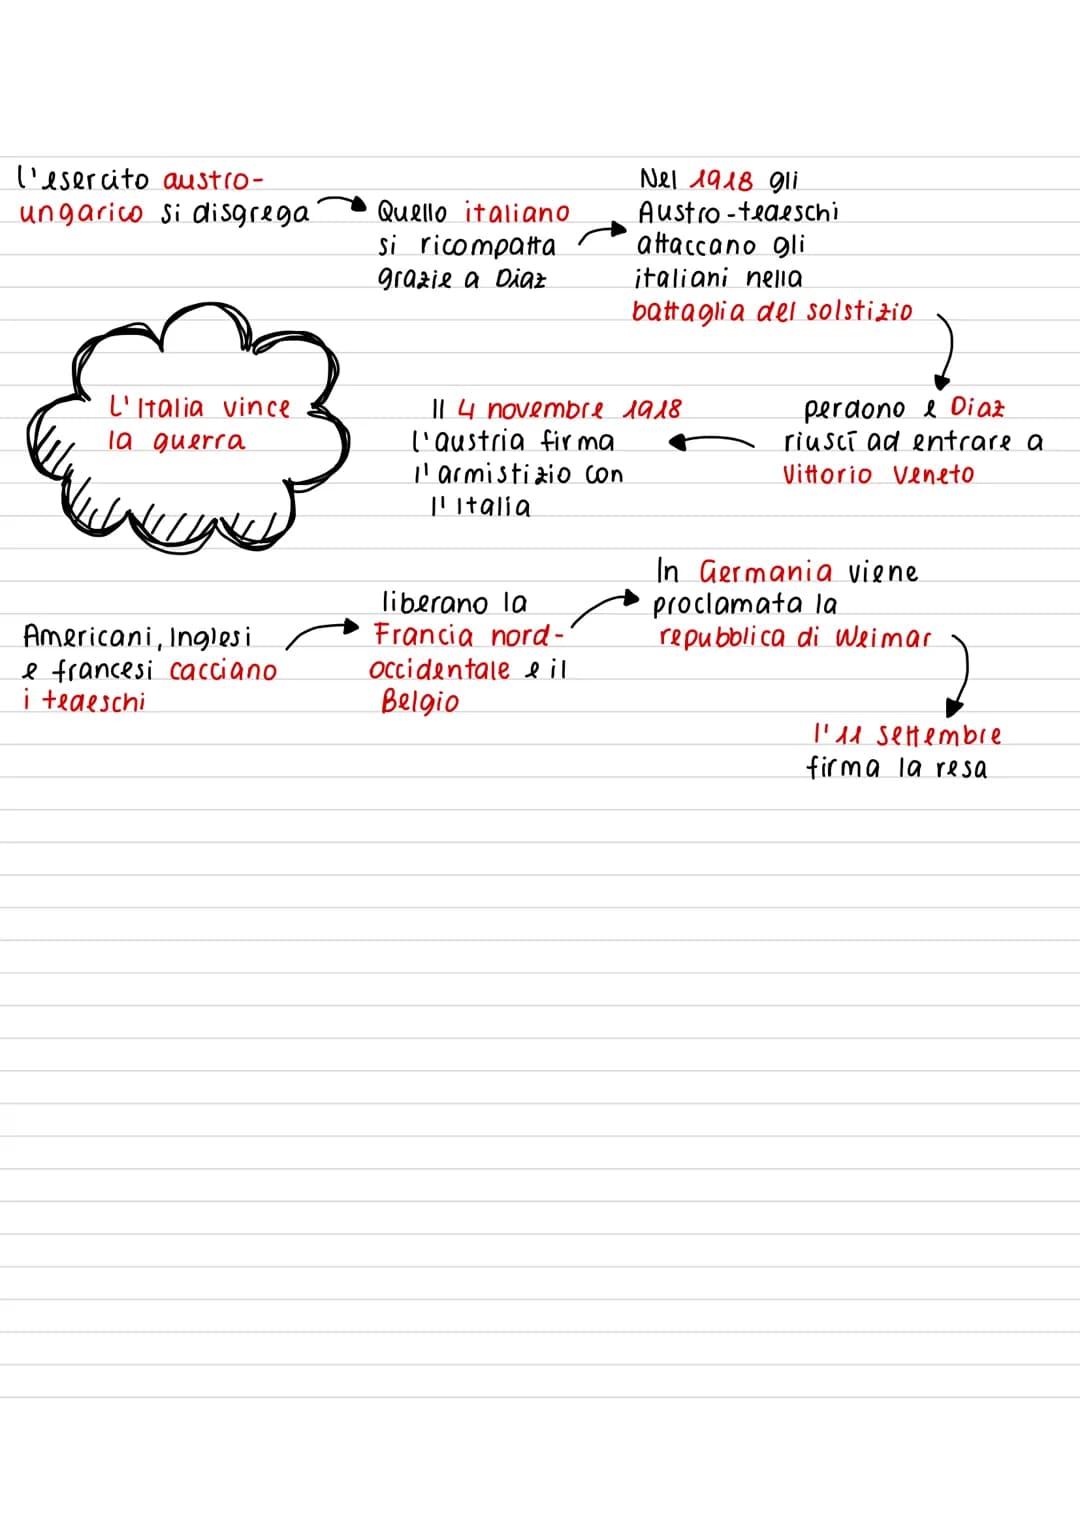 l'esercito austro-
ungarico si disgrega
Quello italiano
si ricompatta
grazie a Diaz
Nel 1918 gli
Austro-tedeschi
attaccano gli
italiani nella
battaglia del solstizio
perdono e Diaz
riuscì ad entrare a
Vittorio Veneto
Il 4 novembre 1918
l'austria firma
l'armistizio con
l'Italia
L'Italia vince
la guerra
Americani, Inglesi
e francesi cacciano
i tedeschi
liberano la
Francia nord-
occidentale e il
Belgio
In Germania viene
proclamata la
repubblica di Weimar
l'11 settembre
firma la resa